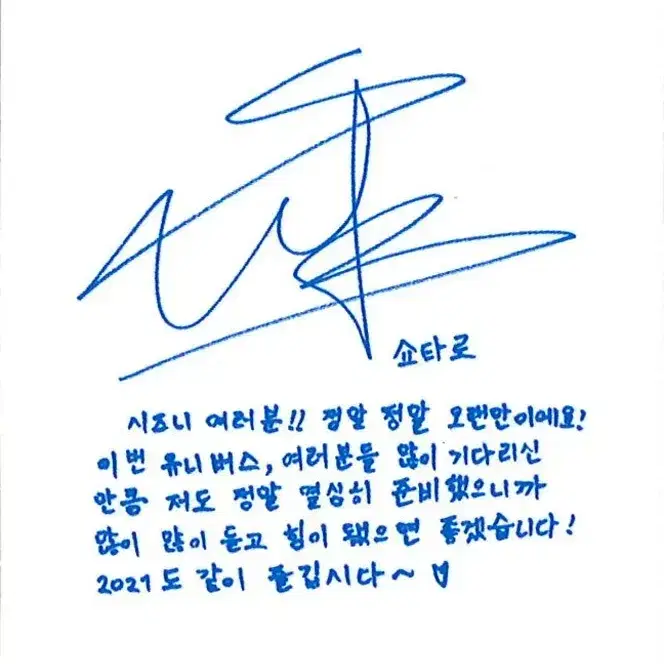 쇼타로
시즈니 여러분!! 정말 정말 오랜만이에요!
이번 유니버스, 여러분들 많이 기다리신
만큼 저도 정말 열심히 준비했으니까
많이 많이 듣고 힘이 됐으면 좋겠습니다!
2021도 같이 즐깁시다~